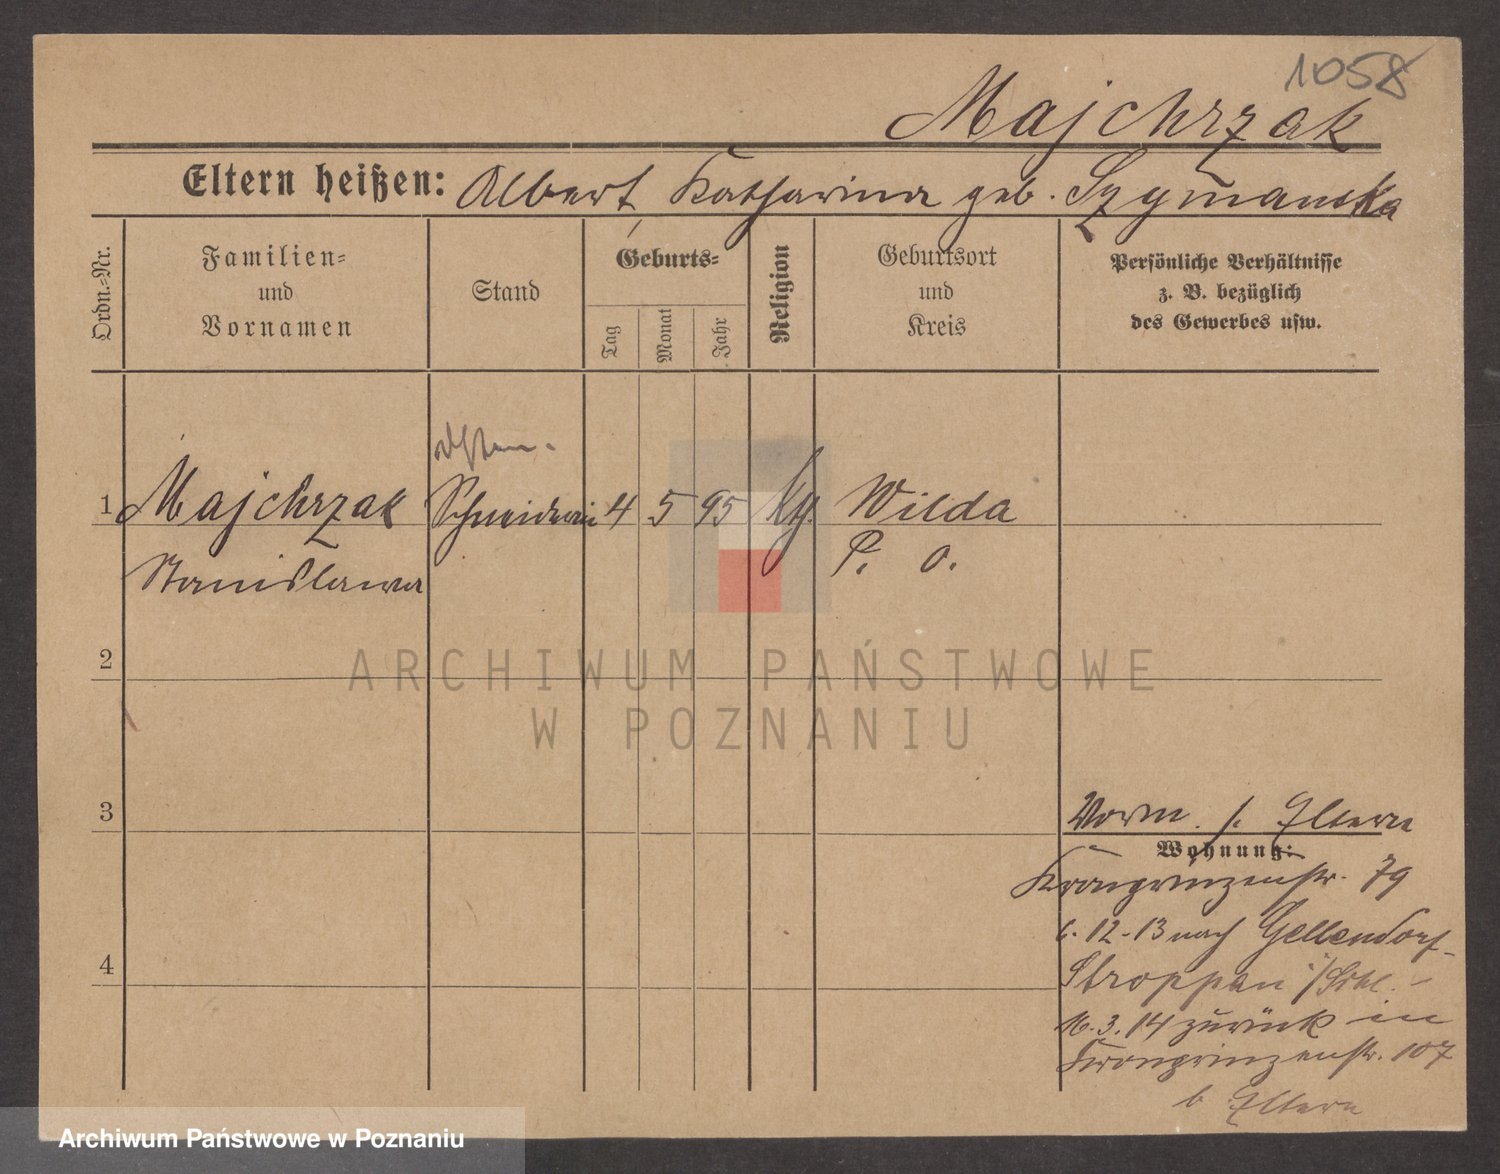 1058
Majchrzak
Eltern heißen: Albert Katharina geb. Szymanska
Ordn.-Nr.
Familien-
und
Vornamen
Stand
Geburts-
Tag
Monat
Jahr
Religion
Geburtsort
und
Kreis
Persönliche Verhältnisse
z. B. bezüglich
des Gewerbes usw.
1 Majchrzak Schneiderin 4 5 95 kth. Wilda
Stanislawa P. O.
2
3
Vorm. s. Eltern
Wohnung:
Kronprinzenstr. 79
6. 12. 13 nach Gellendorf
Stroppen i/Schl.
16. 3. 14 zurück in
Kronprinzenstr. 107
b Eltern
4
ARCHIWUM PAŃSTWOWE
W POZNANIU
Archiwum Państwowe w Poznaniu